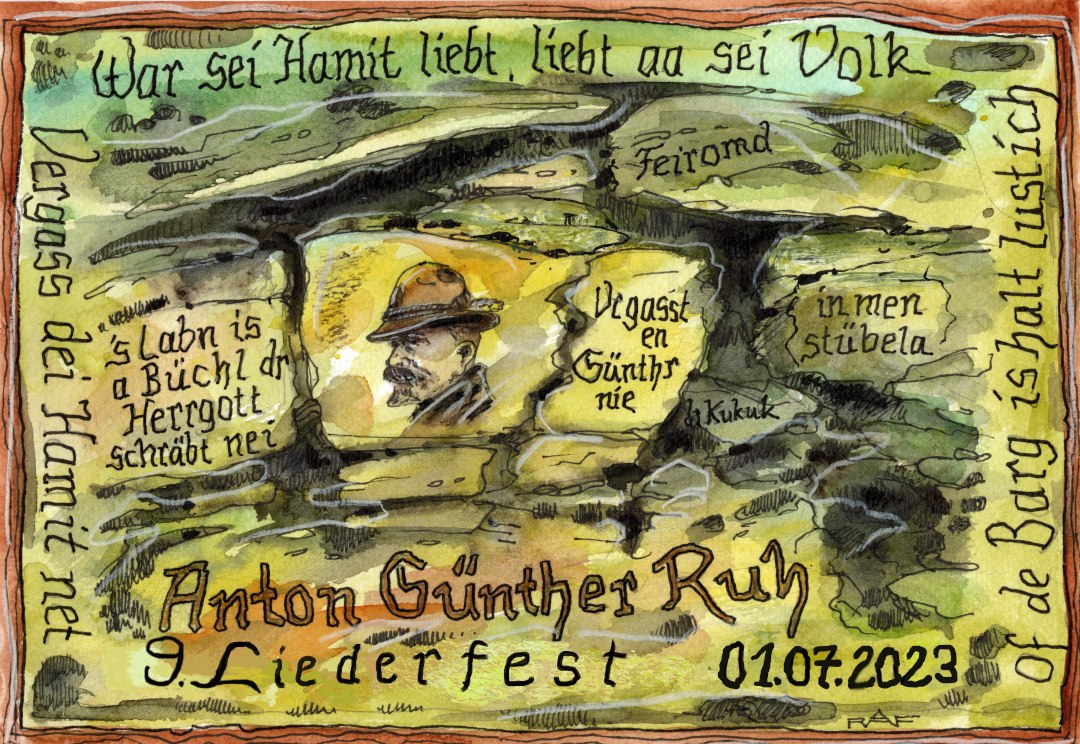 War sei Hamit liebt, liebt aa sei Volk
Vergass dei Hamit net
of de Barg is halt lustich
Feiromd
's Labn is
a Büchl dr
Herrgott
schräbt nei
Vrgasst
en
Günthr
nie
in men
stübela
dr Kukuk
Anton Günther Ruh
9. Liederfest 01.07.2023
RAF